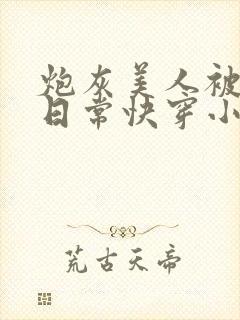 炮灰美人被
日常快穿小
荒古天帝